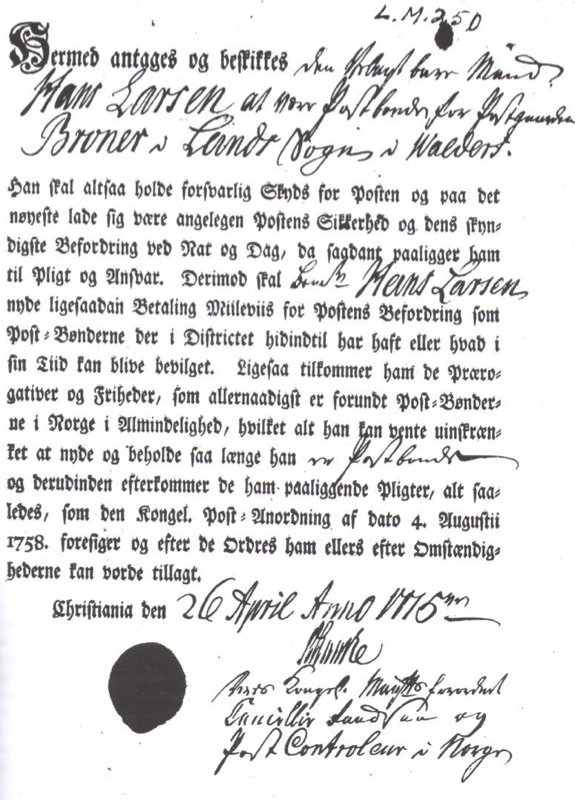 L.M.250
Hermed antages og beskikkes den Velagtbare Mand
Hans Larsen at være Postbonde for Postgaarden
Broner i Lands Sogn i Walders.
Han skal altsaa holde forsvarlig Skyds for Posten og paa det
nøyeste lade sig være angelegen Postens Sikkerhed og dens skyn-
digste Befordring ved Nat og Dag, da saadant paaligger ham
til Pligt og Ansvar. Derimod skal Hans Larsen
nyde ligesaadan Betaling Miileviis for Postens Befordring som
Post-Bønderne der i Districtet hidindtil har haft eller hvad i
sin Tiid kan blive bevilget. Ligesaa tilkommer ham de Præro-
gativer og Friheder, som allernaadigst er forundt Post-Bønder-
ne i Norge i Almindelighed, hvilket alt han kan vente uinskræn-
ket at nyde og beholde saa længe han er Postbonde
og derudinden efterkommer de ham paaliggende Pligter, alt saa-
ledes, som den Kongel. Post-Anordning af dato 4. Augustii
1758. foresiger og efter de Ordres ham ellers efter Omstændig-
hederne kan vorde tillagt.
Christiania den 26 April Anno 1775
Kongel. Maytts
og
Post Controleur i Norge